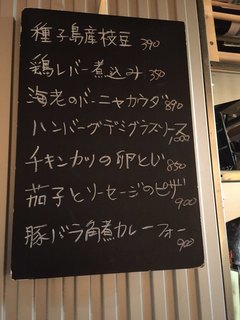 種子島産枝豆 390
鶏レバー煮込み 350
海老のバーニャカウダ 890
ハンバーグデミグラスソース 1000
チキンカツの卵とじ 850
茄子とソーセージのピザ 900
豚バラ角煮カレーフォー 900